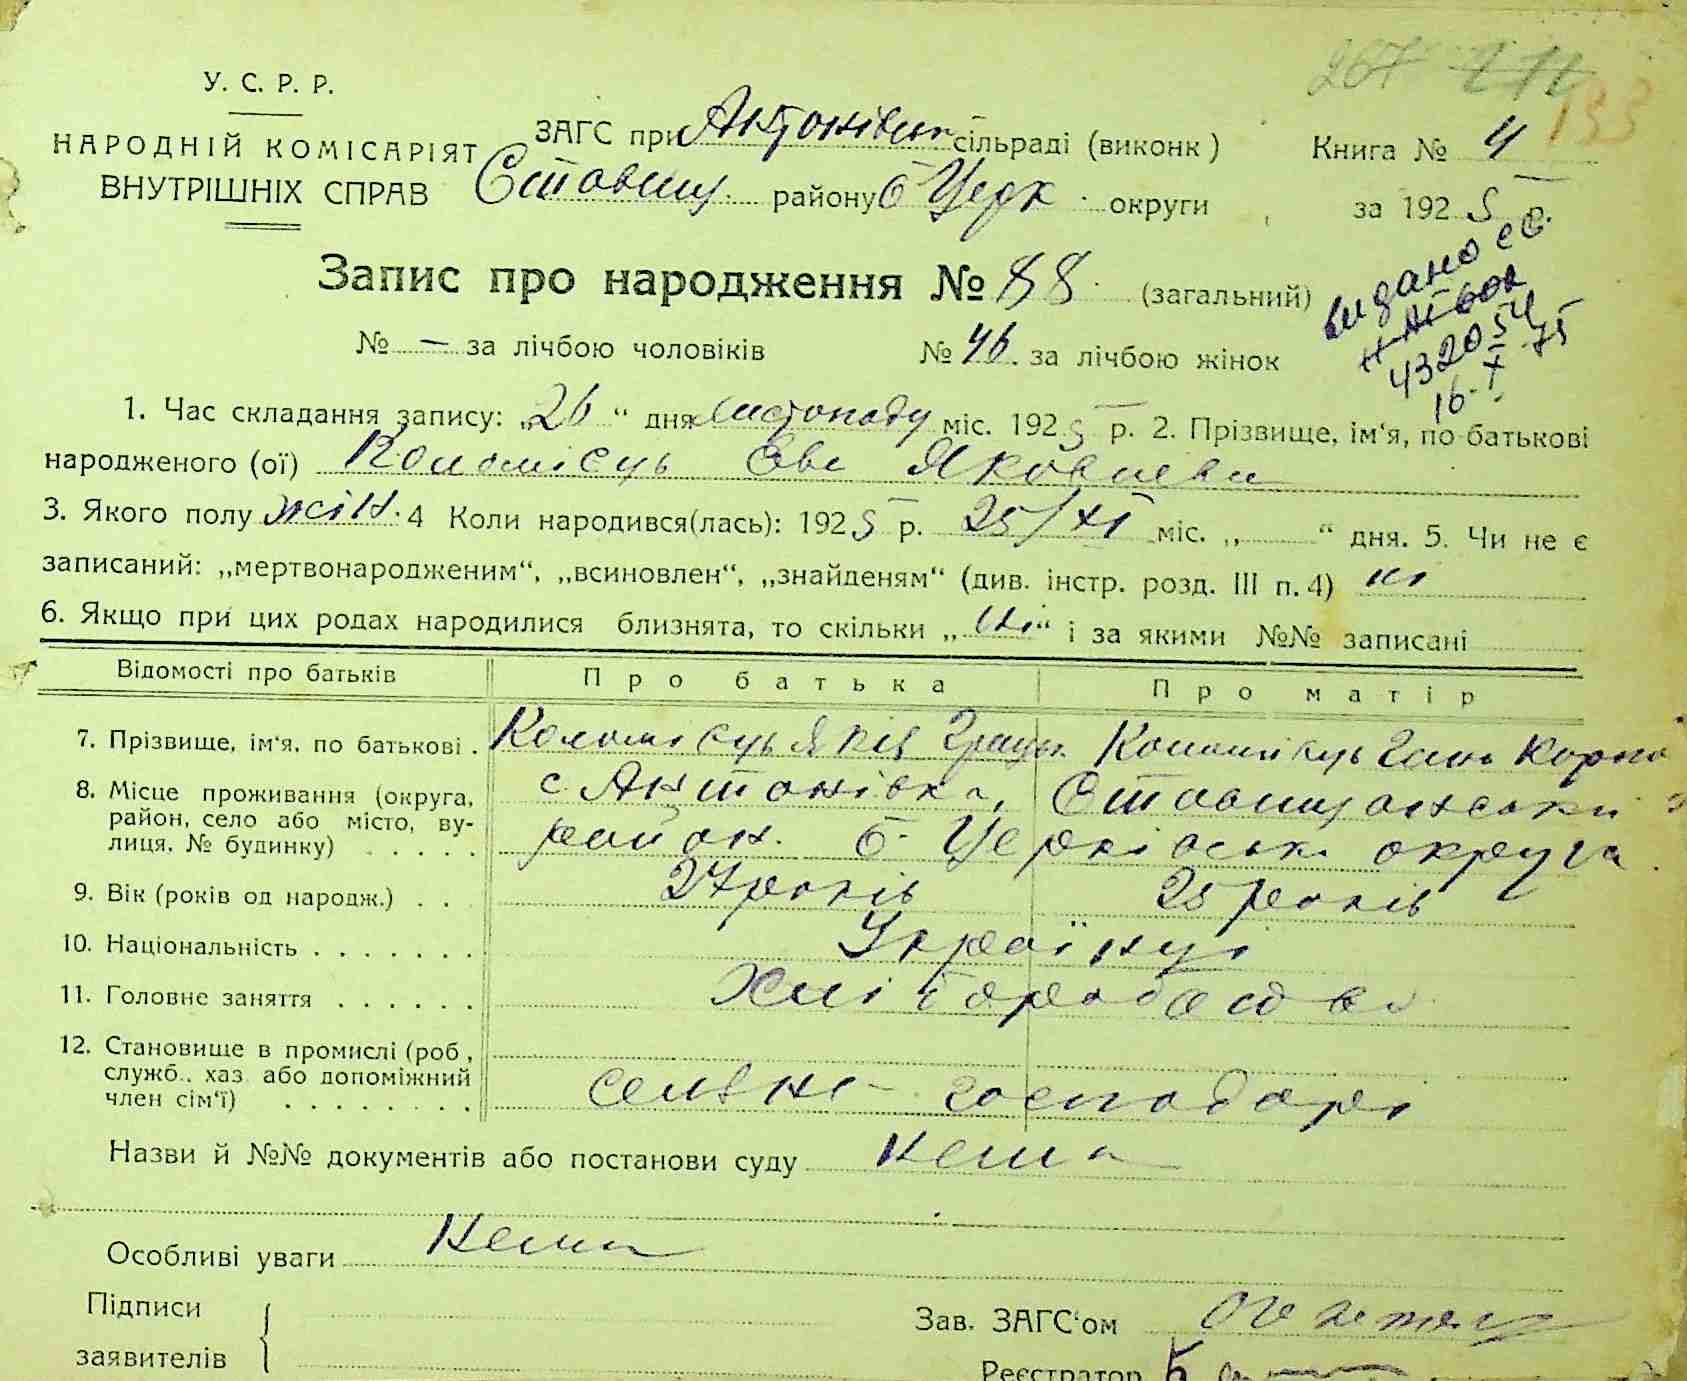 267
133
У. С. Р. Р.
НАРОДНІЙ КОМІСАРІЯТ
ВНУТРІШНІХ СПРАВ
ЗАГС при Антонівськ сільраді (виконк)
Ставищ. району Б Церк. округи
Книга № 4
за 1925 р.
Запис про народження № 88. (загальний)
видано
432054
16.X.75
№ — за лічбою чоловіків № 46 за лічбою жінок
1. Час складання запису: „26“ дня листопаду міс. 1925 р. 2. Прізвище, ім‘я, по-батькові
народженого (ої) Коломієць Єва Яковлева
3. Якого полу жін. 4 Коли народився(лась): 1925 р. 25/XI міс. „ “ дня. 5. Чи не є
записаний: „мертвонародженим“, „всиновлен“, „знайденям“ (див. інстр. розд. III п. 4) ні
6. Якщо при цих родах народилися близнята, то скільки „ні“ і за якими №№ записані
Відомості про батьків Про батька Про матір
7. Прізвище, ім‘я, по батькові. Коломієць Яків Коломієць Ганна
8. Місце проживання (округа, с Антонівка, Ставищанськи
район, село або місто, ву-
лиця, № будинку) район. Б. Церківська округа
9. Вік (років од народж.) 27 років 25 років
10. Національність Українці
11. Головне заняття Хліборобство
12. Становище в промислі (роб,
служб., хаз або допоміжний
член сім‘ї) господарі
Назви й №№ документів або постанови суду Нема
Особливі уваги Нема
Підписи
заявителів
Зав. ЗАГС‘ом
Реєстратор